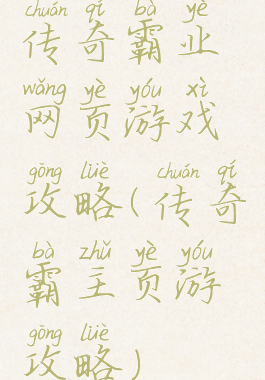 chuán qí bà yè
传奇霸业
wǎng yè yóu xì
网页游戏
gōng lüè ( chuán qí
攻略(传奇
bà zhǔ yè yóu
霸主页游
gōng lüè
攻略)